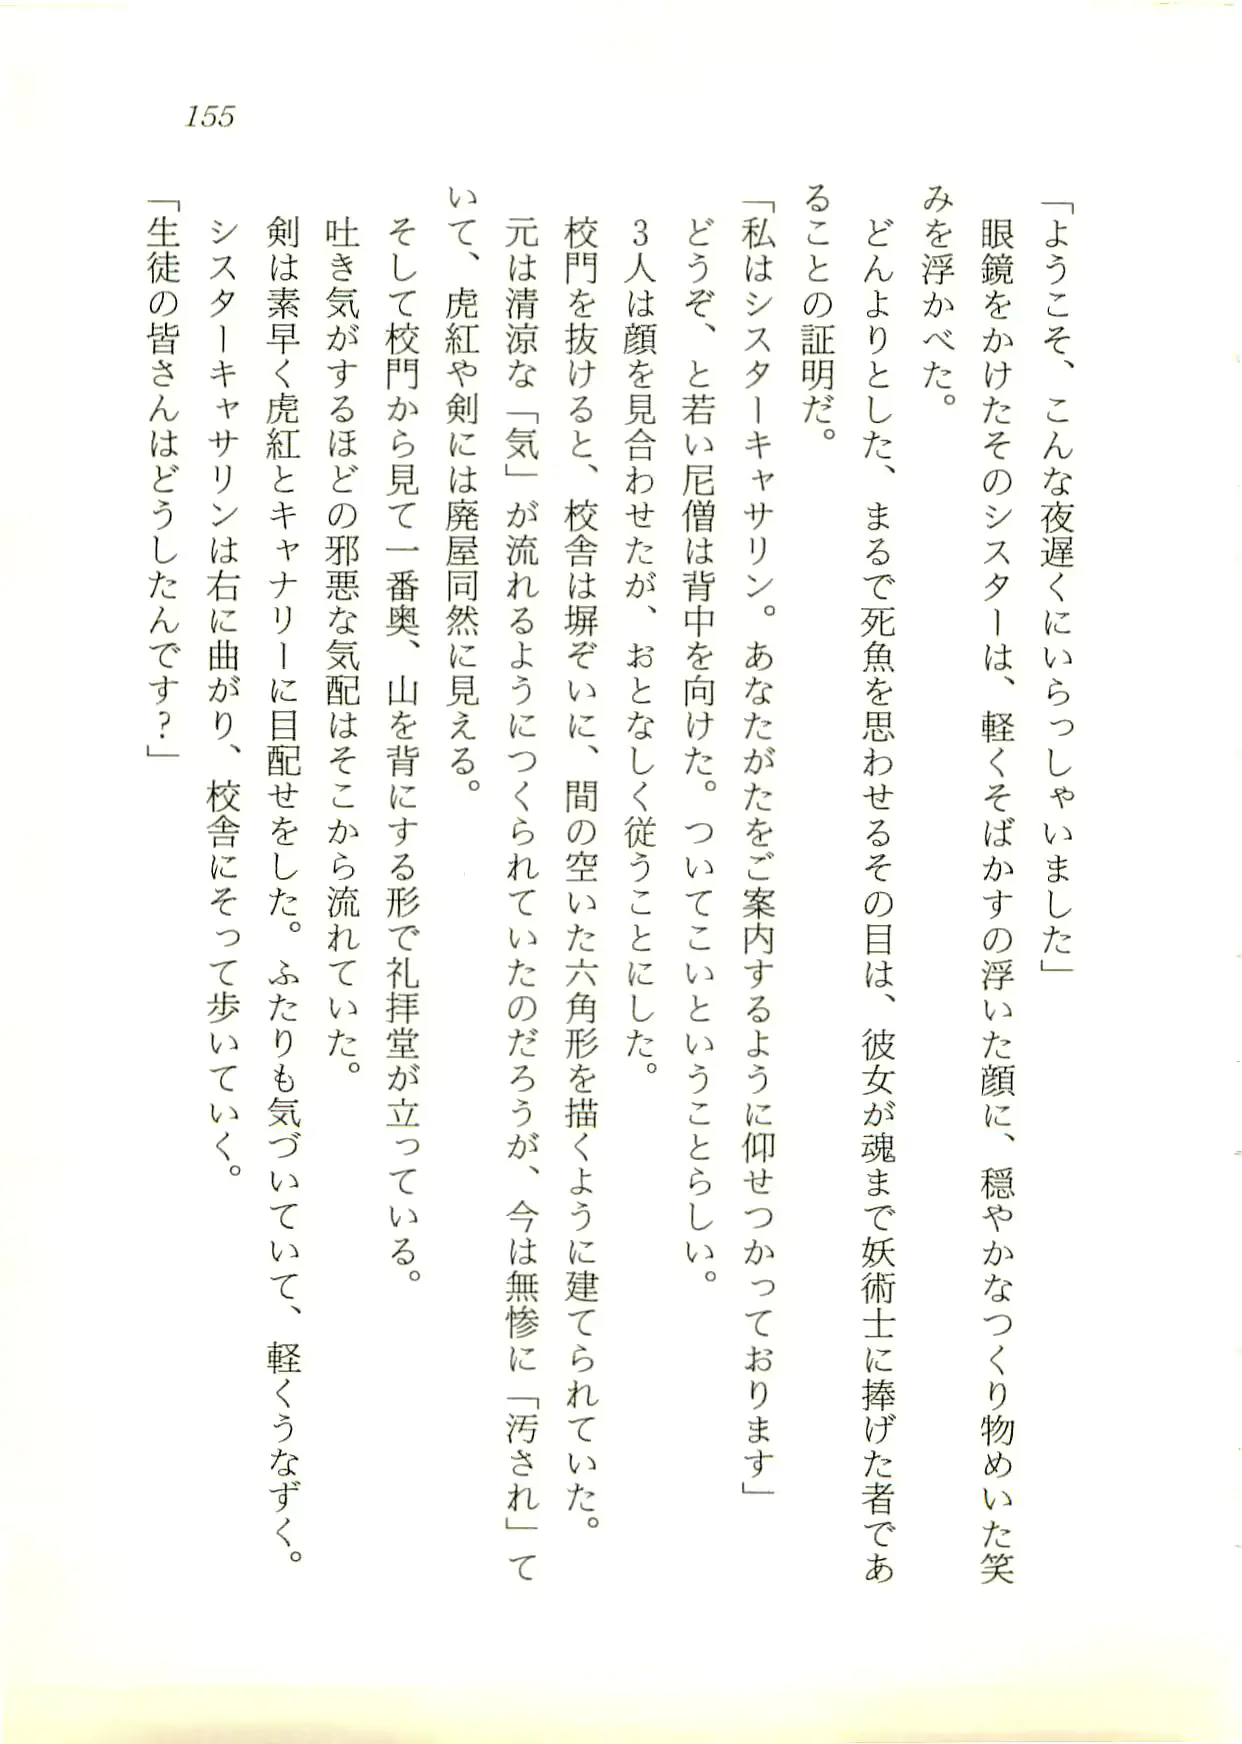 155
「ようこそ、こんな夜遅くにいらっしゃいました」
眼鏡をかけたそのシスターは、軽くそばかすの浮いた顔に、穏やかなつくり物めいた笑
みを浮かべた。
どんよりとした、まるで死魚を思わせるその目は、彼女が魂まで妖術士に捧げた者であ
ることの証明だ。
「私はシスターキャサリン。あなたがたをご案内するように仰せつかっております」
どうぞ、と若い尼僧は背中を向けた。ついてこいということらしい。
3人は顔を見合わせたが、おとなしく従うことにした。
校門を抜けると、校舎は塀ぞいに、間の空いた六角形を描くように建てられていた。
元は清涼な「気」が流れるようにつくられていたのだろうが、今は無惨に「汚され」て
いて、虎紅や剣には廃屋同然に見える。
そして校門から見て一番奥、山を背にする形で礼拝堂が立っている。
吐き気がするほどの邪悪な気配はそこから流れていた。
剣は素早く虎紅とキャナリーに目配せをした。ふたりも気づいていて、軽くうなずく。
シスターキャサリンは右に曲がり、校舎にそって歩いていく。
「生徒の皆さんはどうしたんです?」